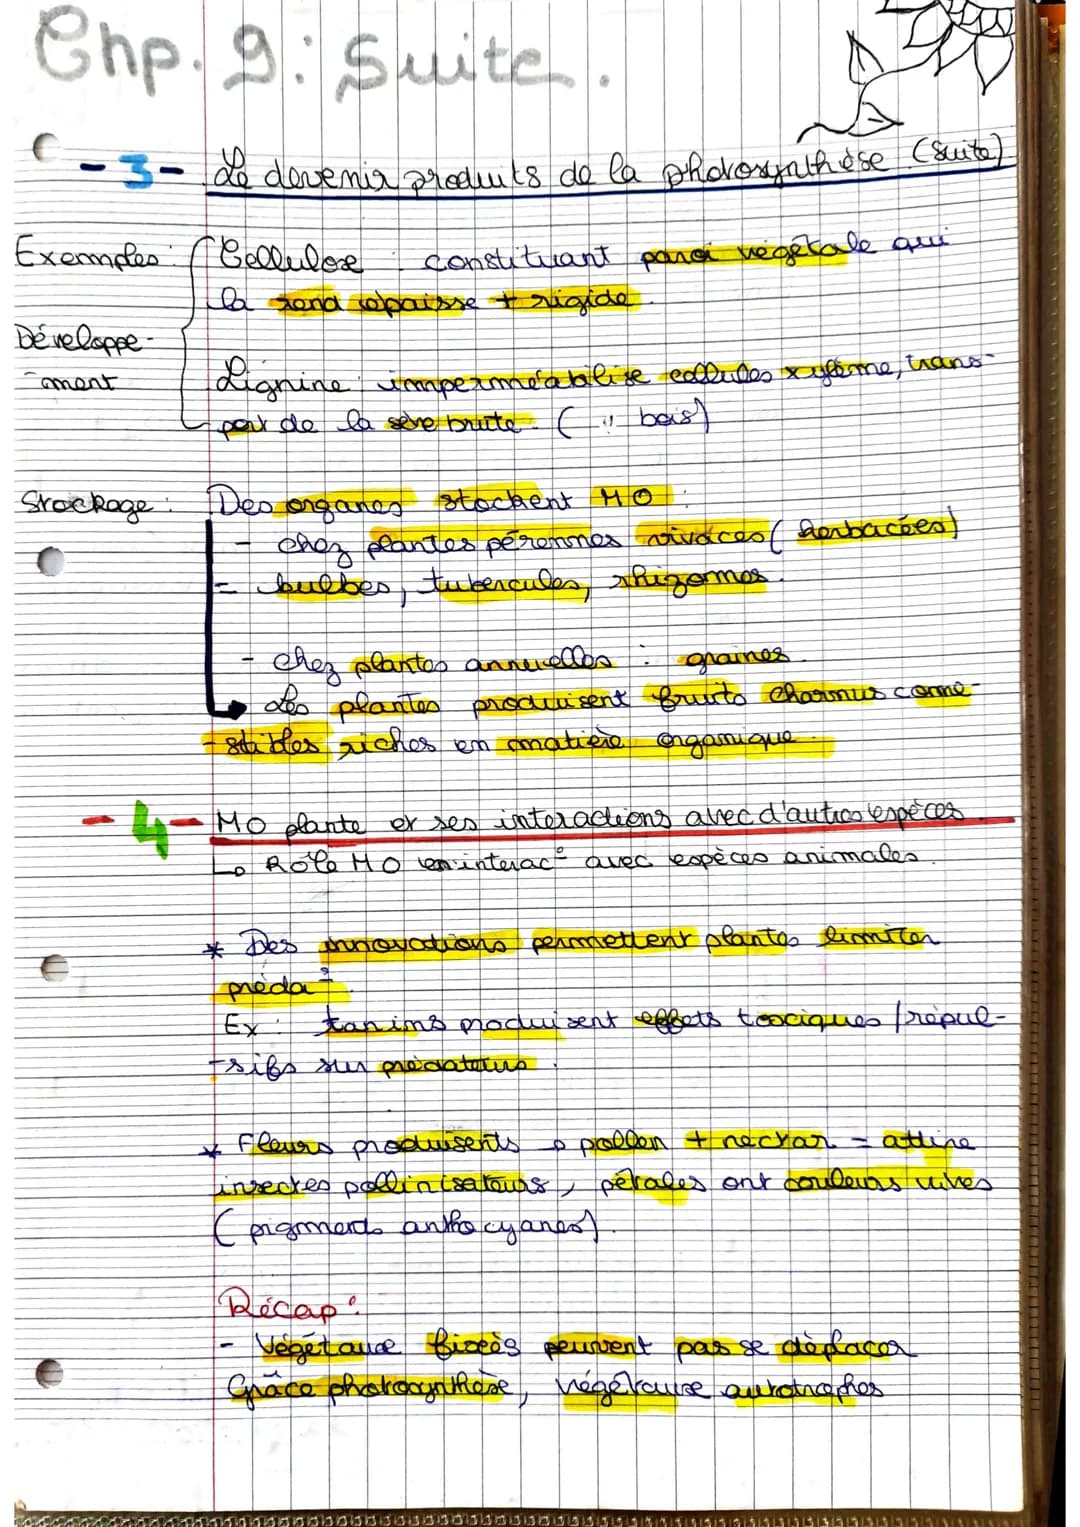 Chp. 9 : Suite.
-3- Le devenir produits de la photosynthèse (suite)
Exemples : Cellulose : constituant paroi végétale qui
la rend épaisse + rigide.
Développe-
-ment
Lignine : imperméabilise cellules xylème, trans-
port de la sève brute. ( " bois)
Stockage : Des organes stockent MO :
- chez plantes pérennes vivaces (herbacées)
= bulbes, tubercules, rhizomes.
- chez plantes annuelles : graines.
Les plantes produisent fruits charnus come-
-stibles riches en matière organique.
-4- MO plante et ses interactions avec d'autres espèces.
↳ Rôle MO en interac° avec espèces animales.
* Des innovations permettent plantes limiter
préda°.
Ex : tanins produisent effets toxiques / répul-
-sifs sur prédateurs.
* Fleurs produisents → pollen + nectar = attire
insectes pollinisateurs, pétales ont couleurs vives
(pigments anthocyanes).
Récap :
- Végétaux fixés peuvent pas se déplacer
Grâce photosynthèse, végétaux autotrophes